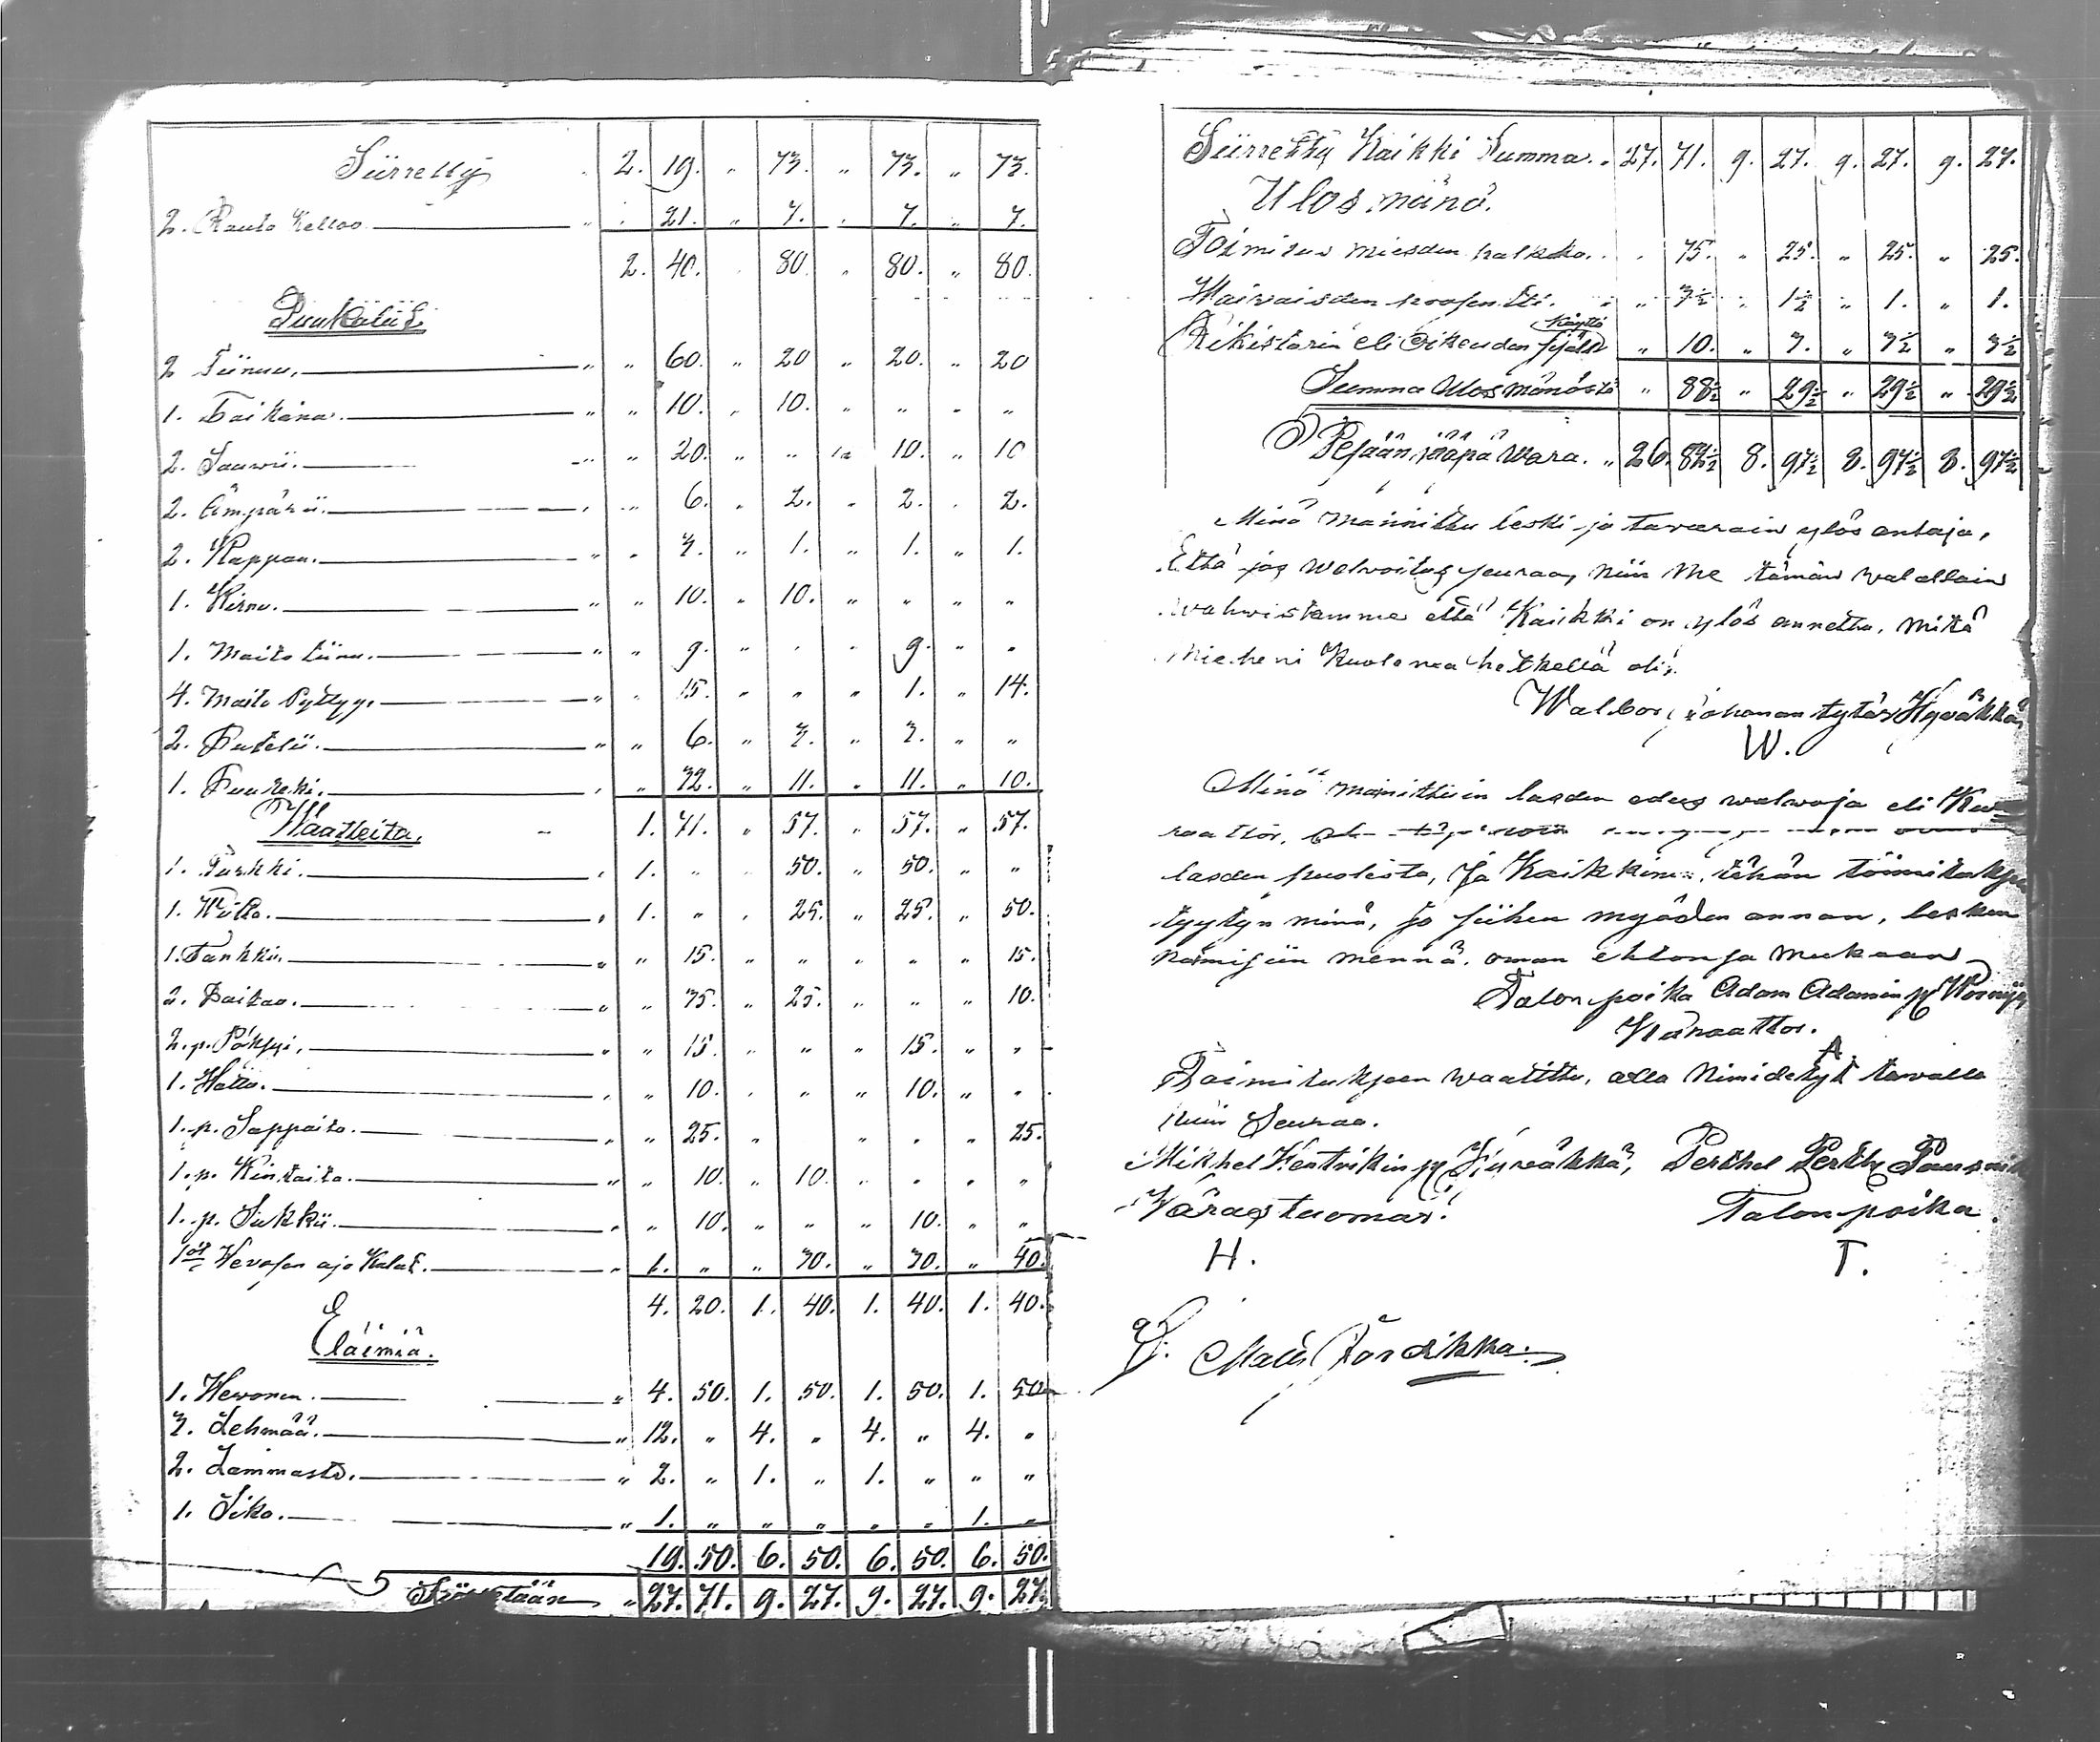 Siirretty 2. 19. " 73. " 73. " 73.
2. Rauta Kelloo " . 21. " 7. . 7. " 7.
2. 40. . 80. " 80. " 80.
Puukalut
2 Tiinuu, " " 60. " 20 " 20. " 20
1. Taikina. " " 10. " 10. " " " "
2. Saawii. " " 20. " " " 10. " 10
2. Ämpärii. " 6. " 2. " 2. " 2.
2. Kappaa. " " 3. " 1. " 1. " 1.
1. Kirnu. " " 10. " 10. " " " "
1. Maito tiinu. " " 9. " " " 9. " "
4. Maito Pyttyy. " " 15. " " " 1. " 14.
2. Putelii. " " 6. " 3. " 3. " "
1. Puureki. " " 32. " 11. " 11. " 10.
Waatteita. 1. 71. " 57. " 57. " 57.
1. Turkki. " 1. " " 50. " 50. " "
1. Wiitta. " 1. " " 25. " 25. " 50.
1. Tankki. " " 15. " " " " " 15.
2. Paitaa. " " 35. " 25. " " " 10.
2. p. Pöksyi. " " 15. " " " 15. " "
1. Hattu. " " 10. " " " 10. " "
1. p. Sappaita. " " 25. " " " " 25.
1. p. Kintaita. " " 10. " 10. " " " "
1. p. Sukkii. " " 10. " " " 10. " "
1 Hevosen ajo Kalut. " 1. " " 30. " 30. " 40.
4. 20. 1. 40. 1. 40. 1. 40.
Eläimiä.
1. Hewonen. " 4. 50. 1. 50. 1. 50. 1. 50
3. Lehmää. " 12. " 4. " 4. " 4. "
2. Lammasta. " 2. " 1. " 1. " " "
1. Sika. " 1. " " " " " 1. "
19. 50. 6. 50. 6. 50. 6. 50.
Siirretään " 27. 71. 9. 27. 9. 27. 9. 27.
Siirretty Kaikki Summa. . 27. 71. 9. 27. 9. 27. 9. 27.
Ulos mänö.
Toimitus miesden palkka. . . 75. " 25. " 25. " 25.
Waivaisden prosentti. " " 3½ " 1½ " 1. " 1.
Käyttö
Rikistarin eli Oikeuden " 10. " 3. " 3½ " 3½
Summa Ulos mänöstä " 88½ " 29½ " 29½ " 29½
Pesään jääpä Wara. " 26. 82½ 8. 97½ 8. 97½ 8. 97½
Minä mainittu leski ja tavarain ylös antaja,
Että jos walvoitus seuraa, niin Me tämän walallain
wahwistamme että Kaikki on ylös annettu, mitä
Mieheni Kuoleman hetkellä oli.
Walbor Johanan tytär Hyväkkä
W.
Minä mainittuin lasden edus walwoja eli Ku
raattor,
lasden puolesta, Ja Kaikkiin tähän toimituksen
tyytyn minä, ja siihen myöden annan, lesken
naimisiin mennä. oman ehtonsa mukaan
Talonpoika Adam Adamin p
Kuraattor.
A.
Toimituksen waatittu, alla Nimidetyt tavalla
kuin Seuraa.
Mikhel Hentrikin p Hyväkkä, Perthel Perth
Härag tuomari. Talonpoika.
H. T.
Matts